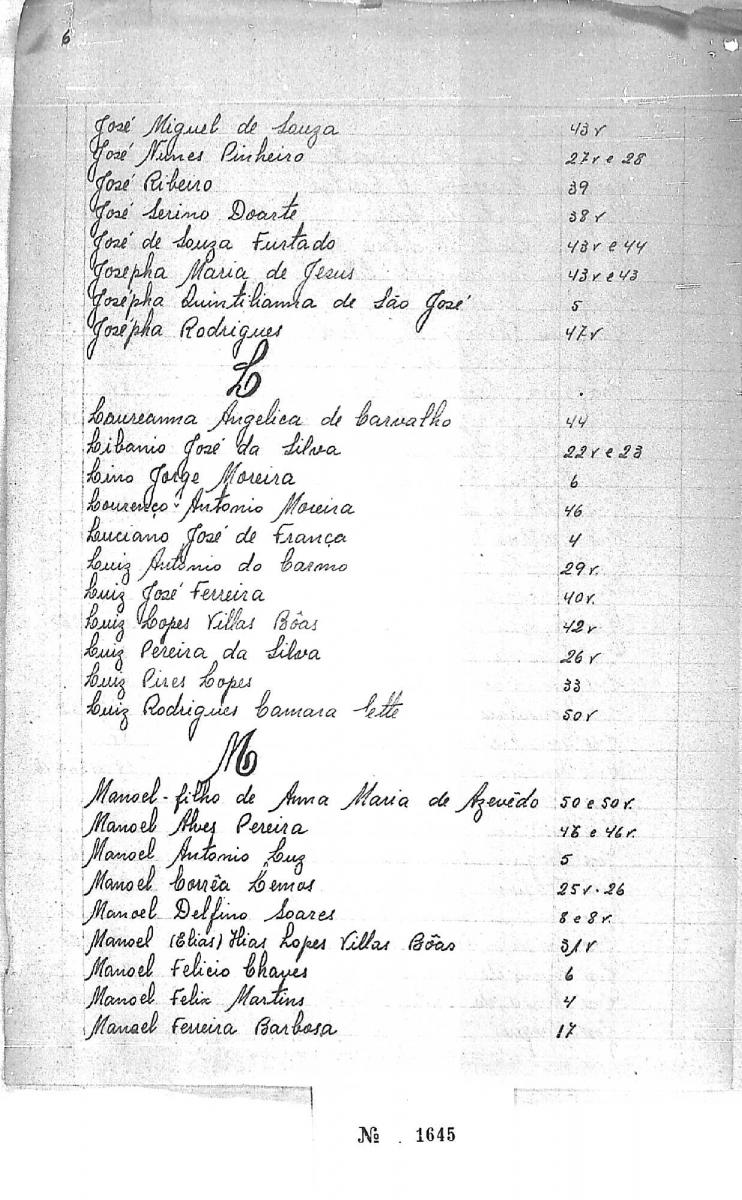 6
José Miguel de Souza 43 v
José Nunes Pinheiro 27 v e 28
José Ribeiro 39
José Serino Doarte 38 v
José de Souza Furtado 43 v e 44
Josepha Maria de Jesus 43 v e 43
Josépha Quintilianna de São José 5
Josépha Rodrigues 47 v
L
Laureanna Angelica de Carvalho 44
Libanio José da Silva 22 v e 23
Lino Jorge Moreira 6
Lourenço Antonio Moreira 46
Luciano José de França 4
Luiz Antônio do Carmo 29 v.
Luiz José Ferreira 40 v.
Luiz Lopes Villas Bôas 42 v
Luiz Pereira da Silva 26 v
Luiz Pires Lopes 33
Luiz Rodrigues Camara 50 v
M
Manoel - filho de Anna Maria de Azevêdo 50 e 50 v.
Manoel Alves Pereira 46 e 46 v.
Manoel Antonio Luz 5
Manoel Corrêa Lemos 25 v. 26
Manoel Delfino Soares 8 e 8 v.
Manoel (Elias) Hias Lopes Villas Bôas 31 v
Manoel Felicio Chaves 6
Manoel Felix Martins 4
Manoel Ferreira Barbosa 17
№ . 1645